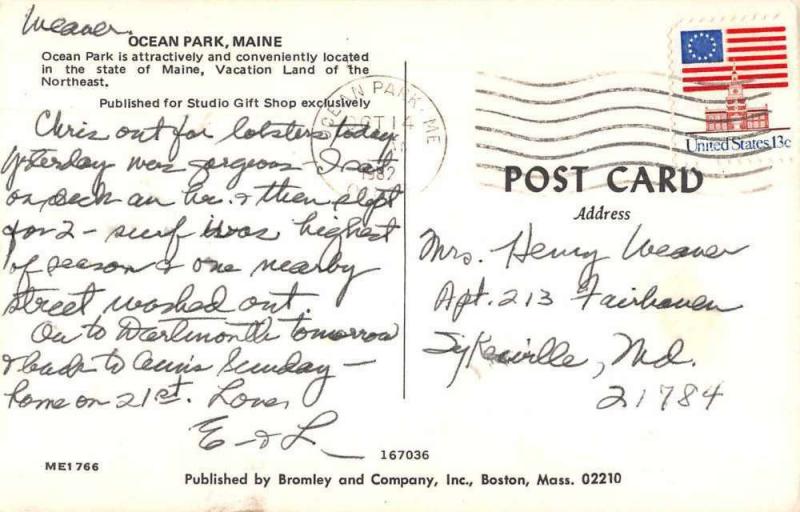 Weaver
OCEAN PARK, MAINE
Ocean Park is attractively and conveniently located
in the state of Maine, Vacation Land of the
Northeast.
Published for Studio Gift Shop exclusively
Chris out for lobsters today
yesterday was gorgeous - I sat
on deck an hr. & then slept
for 2 - surf was highest
of season & one nearby
street washed out.
On to Dartmouth tomorrow
& back to Ann's Sunday -
home on 21st. Love,
E - & L
ME1766
OCEAN PARK, ME
OCT 14
1982
United States 13c
POST CARD
Address
Mrs. Henry Weaver
Apt. 213 Fairhaven
Sykesville, Md.
21784
167036
Published by Bromley and Company, Inc., Boston, Mass. 02210